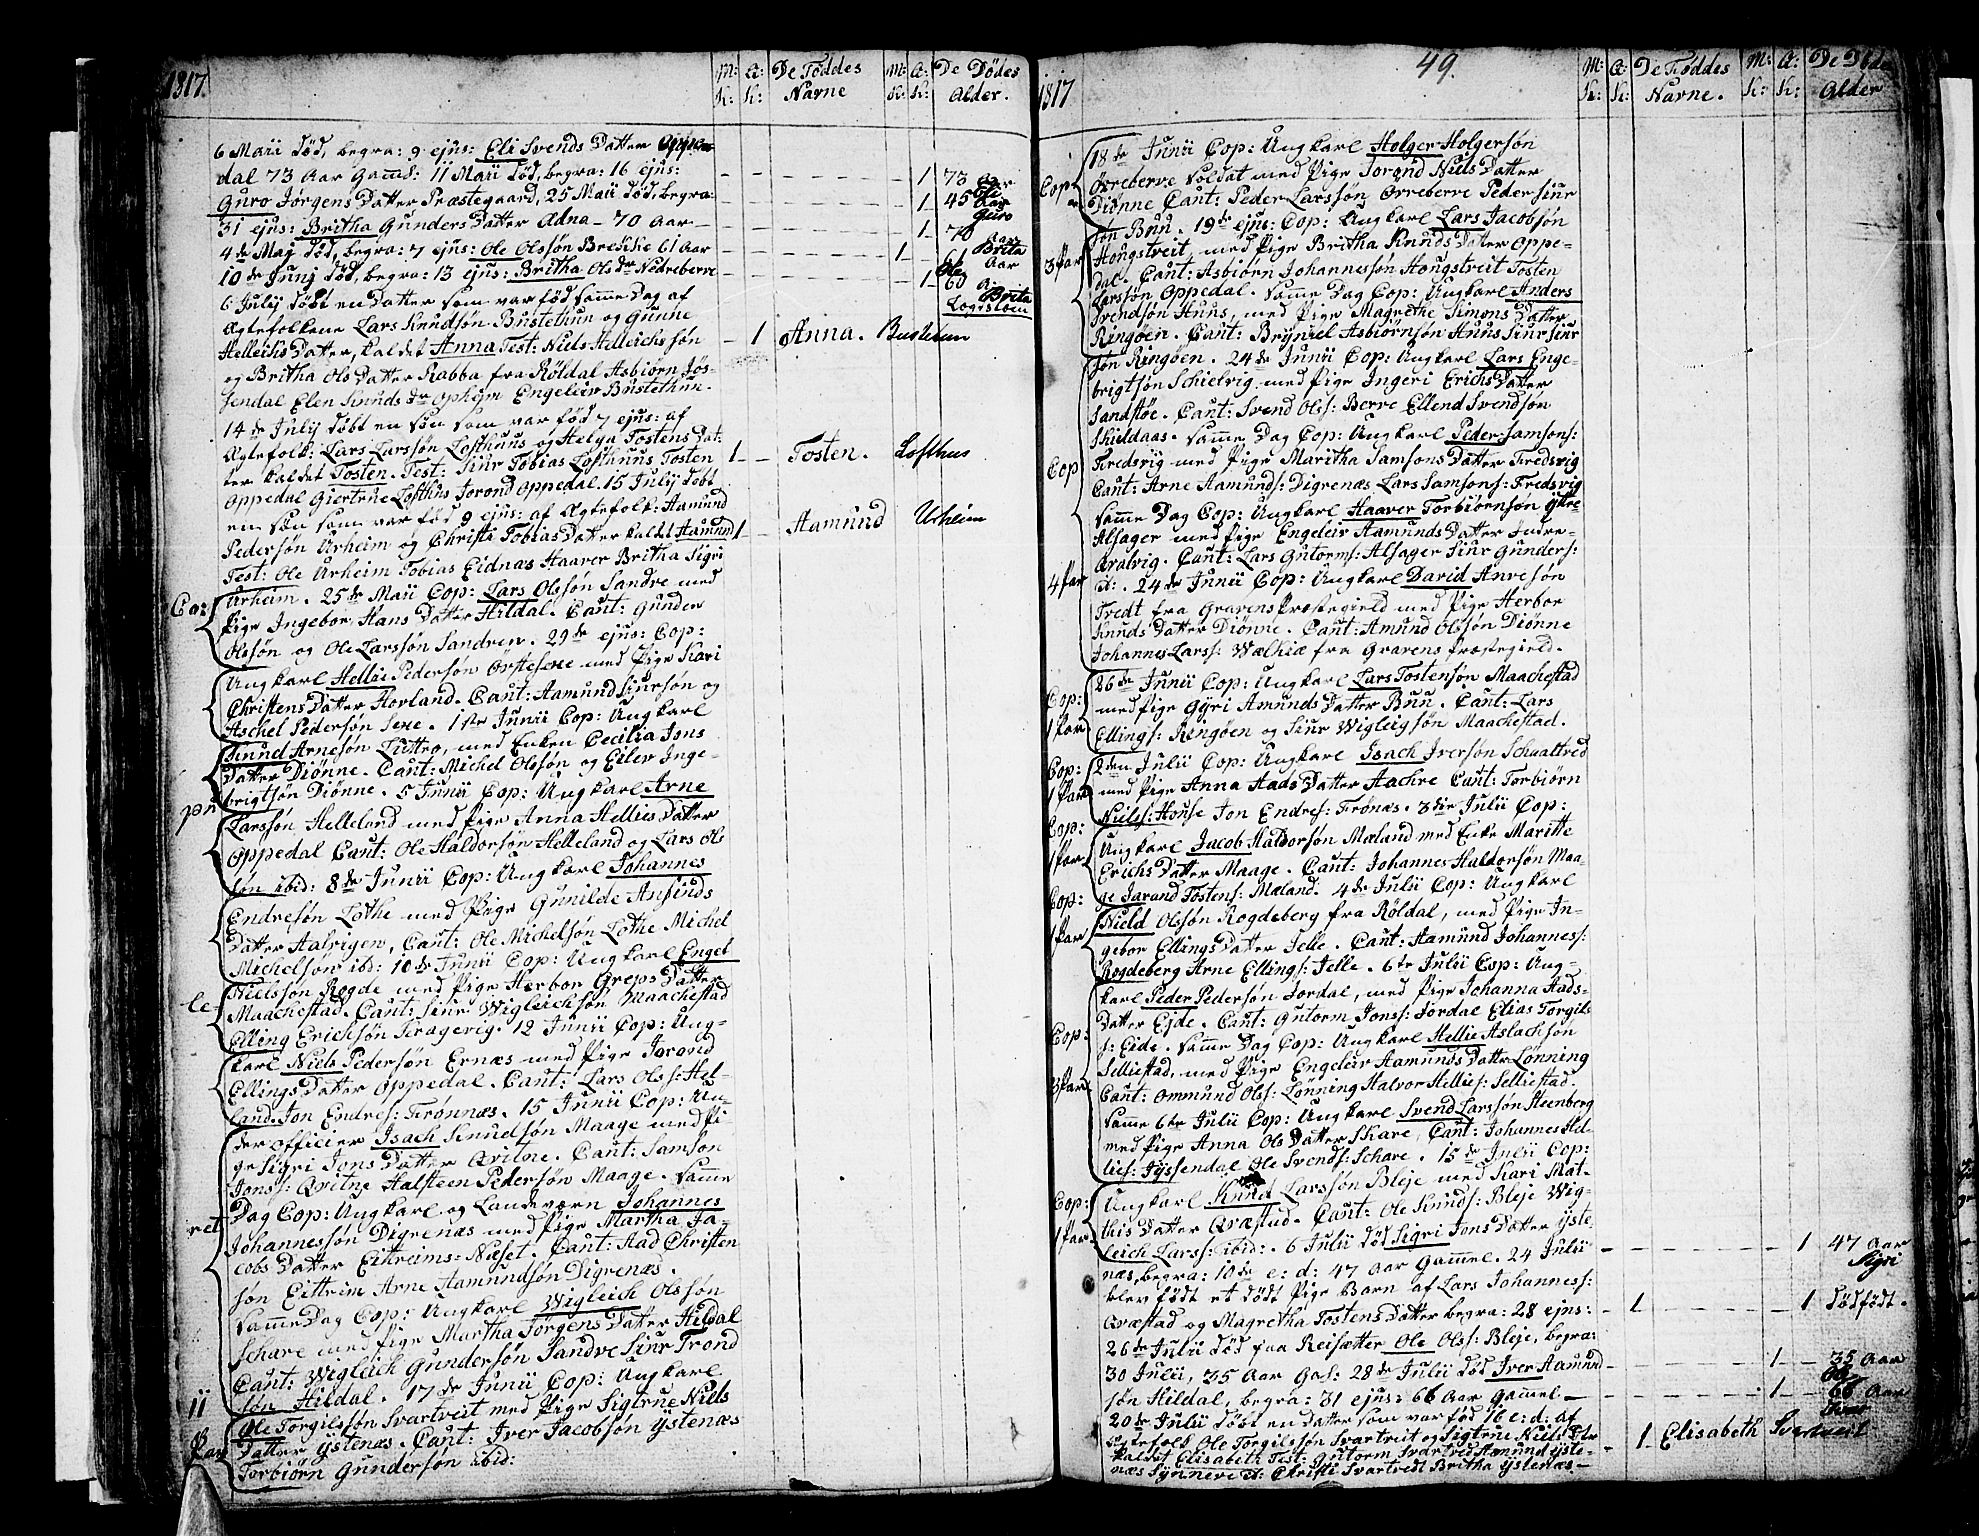 1817.
M: A: De Føddes M: A: De Dødes
K: K: Navne K: K: Alder.
6 Maii død, begra: 9 ejus: Eli Svends Datter Oppe
dal 73 Aar Gams: 11 Maii død, begra: 16 ejus: 1 73 Aar Eli
Guro Jørgens Datter Præstegaard, 25 Maii død, begra: 1 45 Aar Guro
31 ejus: Britha Gunders Datter Adna - 70 Aar - 1 70 Aar Brita
4de Maj død, begra: 7 ejus: Ole Olssøn Breisie 61 Aar 1 61 Aar Ole
10de Junj død, begra: 13 ejus: Britha Olsdr Nedreberve 1 60 A: Brita
6 Julij døbt en Datter som var fød samme Dag af
Ægtefolkene Lars Knudsøn Bustethun og Gunne
Helleichs Datter, kaldet Anna Test: Niels Helleichssøn 1 Anna. Bustetun
og Britha Ols Datter Rabba fra Røldal Asbiørn Jøs-
sendal Elen Knuds dr Opheim Engeleir Bustethun.
14de Julij døbt en søn som var fød 7 ejus: af
Ægtefolk: Lars Larssøn Lofthuus og Helga Tostens Dat-
ter kaldet Tosten. Test: Siur Tobias Lofthuus Tosten 1 Tosten. Lofthus
Oppedal Giertrue Lofthus Jorond Oppedal. 15 Julij døbt
en søn som var fød 9 ejus: af Ægtefolk: Aamund
Pedersøn Urheim og Christi Tobias Datter kaldet Aamund 1 Aamund Urheim
Test: Ole Urheim Tobias Eidnæs Haaver Britha Sigri
Urheim. 25de Maii Cop: Lars Olssøn Sandre med
Co:
Pige Ingebor Hans Datter Hildal. Caut: Gunder
Olssøn og Ole Larssøn Sandven. 29de ejus: Cop:
Ungkarl Hellie Pedersøn Orstesexe med Pige Kari
Christens Datter Hovland. Caut: Aamund Siursøn og
Aschel Pedersøn Sexe. 1ste Junii Cop: Ungkarl
Knud Arnesøn Luttro, med Enken Cecilia Jons
Datter Diønne. Caut: Michel Olssøn og Eiler Inge-
brigtsøn Diønne. 5 Junii Cop: Ungkarl Arne
Larssøn Helleland med Pige Anna Hellies Datter
Oppedal Caut: Ole Haldorsøn Helleland og Lars Ols
søn ibid: 8de Junii Cop: Ungkarl Johannes
Endresøn Lothe med Pige Gunilde Ansinds
Datter Aalvigen, Caut: Ole Michelsøn Lothe Michel
Michelsøn ibd: 10de Junii Cop: Ungkarl Engel
Nielssøn Rogde med Pige Herbor Greps Datter
Maachestad. Caut: Siur Wigleichsøn Maachestad
Elling Erichsøn Kragevig. 12 Junii Cop: Ung-
karl Niels Pedersøn Ernæs med Pige Jorond
Ellings Datter Oppedal. Caut: Lars Olss: Hel-
land. Jon Endres: Trønnæs. 15 Junii Cop: Un-
der officier Isach Knudsøn Maage med Pi-
ge Sigri Jons Datter Qvitne. Caut: Samson
Jonss: Qvitne Halsteen Pedersøn Maage. Samme
Dag Cop: Ungkarl og Landeværn Johannes
Johannessøn Digrenæs med Pige Martha Ja-
cobs Datter Eitreims: Næset. Caut: Aad Christen
søn Eittrim Arne Aamundsøn Digrenæs.
Samme Dag Cop: Ungkarl Wigleich Olssøn
Schare med Pige Martha Jørgens Datter Hildal
Caut: Wigleich Gundersøn Sandve Siur Trond
søn Hildal. 17de Junii Cop: Ungkarl
Ole Torgilssøn Svartveit med Pige Sigtrue Niels
11 Par
Datter Ystenæs. Caut: Iver Jacobsøn Ystenæs
Torbiørn Gundersøn ibid:
1817
49.
M: A: De Føddes M: A: De Døde
K: K: Navne. K: K: Alder
18de Junii Cop: Ungkarl Holger Holgersøn
Cop
Ørreberve Soldat med Pige Torond Niels Datter
Diønne Caut: Peder Larssøn Ørreberve Peder Siur
søn Buu. 19de ejus: Cop: Ungkarl Lars Jacobsøn
3 Par
Hougstveit, med Pige Britha Knuds Datter Oppe-
dal. Caut: Asbiørn Johannessøn Hougstveit Tosten
Larssøn Oppedal. Samme Dag Cop: Ungkarl Anders
Svendsøn Huus, med Pige Magrethe Simons Datter
Ringøen. Caut: Brynild Asbiørnsøn Huus Siur Siur
søn Ringøen. 24de Junii Cop: Ungkarl Lars Enge-
brigtsøn Schielvig med Pige Ingeri Erichs Datter
Sandstøe. Caut: Svend Olss: Berve Ellend Svendsøn
Skieldaas. Samme Dag Cop: Ungkarl Peder Samsons:
Cop
Tredsviig med Pige Maritha Samsons Datter Fredsvig
Caut: Arne Aamunds: Digrenæs Lars Samsons: Fredsvig
Samme Dag Cop: Ungkarl Haaver Torbiørnsøn Ystre-
Alsager med Pige Engeleir Aamunds Datter Indre-
Aralvig. Caut: Lars Gutorms: Alsager Siur Gunders:
4 Par
it:. 24de Junii Cop: Ungkarl David Anvesøn
Tvedt fra Gravens Prostegield med Pige Herbor
Knuds Datter Diønne. Caut: Amund Olssøn Diønne
Johannes Larss: Wælhiæ fra Gravens Prostegield.
26de Junii Cop: Ungkarl Lars Tostensøn Maachestad
Cop:
med Pige Gyri Amunds Datter Buu. Caut: Lars
1 Par
Ellings: Ringøen og Siur Wigleigsøn Maachestad.
2den Julii Cop: Ungkarl Isach Iversøn Schaaltved
Cop:
1 Par
med Pige Anna Aads Datter Aachre Caut: Torbiørn
Niels: House Jon Endres: Trønæs. 3die Julii Cop:
Cop:
Ungkarl Jacob Haldorsøn Mæland med Enke Maritte
1 Par
Erichs Datter Maage. Caut: Johannes Haldorsøn Maa-
ge Jarand Tostens: Mæland. 4de Julii Cop: Ungkarl
Cop:
Nield Olssøn Rogdeberg fra Røldal, med Pige In-
1 Par
gebor Ellings Datter Jelle. Caut: Aamund Johannes:
Rogdeberg Arne Ellings: Jelle. 6te Julii Cop: Ung-
karl Peder Pedersøn Jordal, med Pige Johanna Aads-
Datter Ejde. Caut: Gutorm Jonss: Jordal Elias Torgils
Cop:
s: Eide. Samme Dag Cop: Ungkarl Hellie Aslachsøn
Selliestad, med Pige Engeleir Aamunds Datter Lønning
3 Par
Caut: Ommund Olss: Lønning Halvor Hellies: Selliestad.
Samme 6te Julii Cop: Ungkarl Svend Larssøn Steenberg
med Pige Anna Ols Datter Skare, Caut: Johannes Hel-
lies: Jyssendal Ole Svends: Schare. 15de Julii Cop:
Cop:
Ungkarl Knud Larssøn Bleje med Kari Mat-
this Datter Qvæstad. Caut: Ole Knuds: Bleje Wig-
1 Par
leich Larss: ibid:. 6 Julii død Sigri Jons Datter Yste
næs, begra: 10de e: d: 47 Aar Gammel. 24 Julii 1 47 Aar Sigri
blev født et dødt Pige Barn af Lars Johanness:
Qvæstad og Magretha Tostens Datter begra: 28 ejus: 1 1 dødfødt.
26de Julii død paa Reisætter Ole Olss: Bleje, begra:
30 Julii, 35 Aar Gas: 28de Julii død Iver Aamund 1 35 Aar Ole
søn Hildal, begra: 31 ejus: 66 Aar Gammel - 1 66 Aar
20de Julii døbt en Datter som var fød 16 e: d: af
Ægtefolk Ole Torgilssøn Svartveit og Sigtrue Niels Dtr
kaldet Elisabeth Test: Gutorm Svartved Aamund Yste- 1 Elisabeth Svartveit
næs Synneve it: Christi Svartvedt Britha Ystenæs-